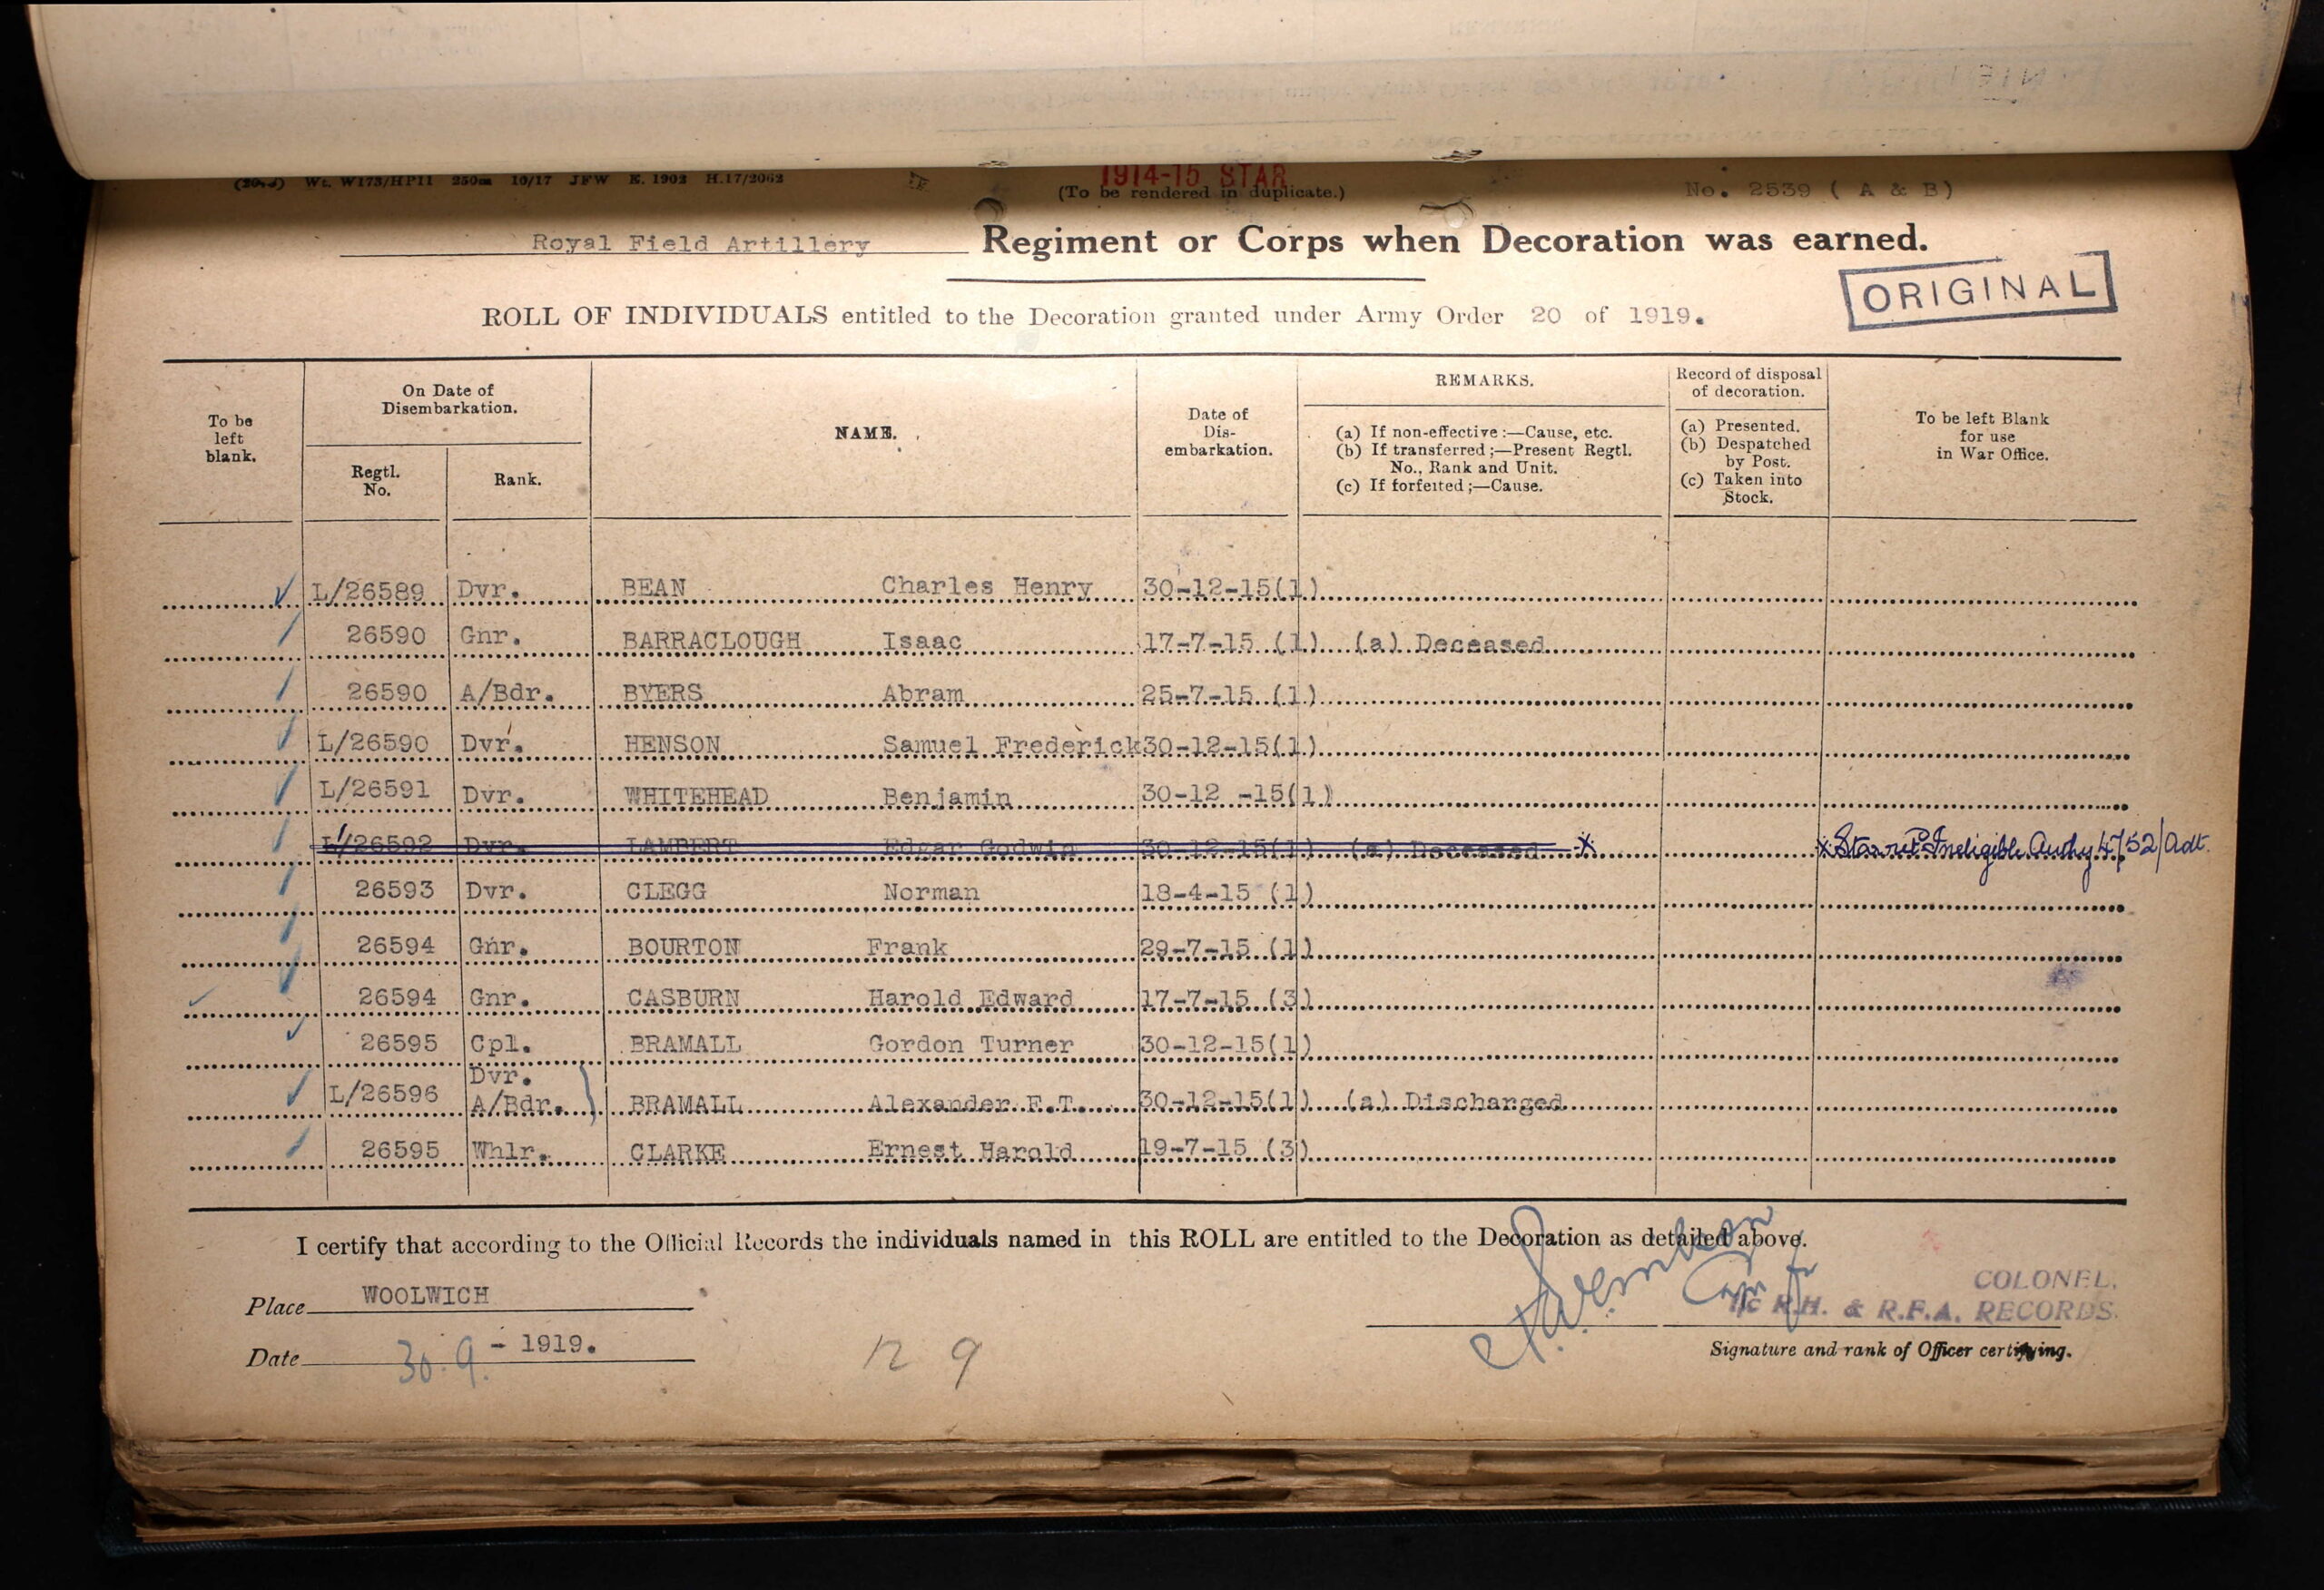 Wt. W173/HP11 250m 10/17 JFW E. 1902 H.17/2062
1914-15 STAR
(To be rendered in duplicate.)
No. 2539 ( A & B)
Royal Field Artillery Regiment or Corps when Decoration was earned.
ORIGINAL
ROLL OF INDIVIDUALS entitled to the Decoration granted under Army Order 20 of 1919.
To be left blank.
On Date of Disembarkation.
Regtl. No.
Rank.
NAME.
Date of Dis-embarkation.
REMARKS.
(a) If non-effective :—Cause, etc.
(b) If transferred ;—Present Regtl. No., Rank and Unit.
(c) If forfeited ;—Cause.
Record of disposal of decoration.
(a) Presented.
(b) Despatched by Post.
(c) Taken into Stock.
To be left Blank for use in War Office.
L/26589 Dvr. BEAN Charles Henry 30-12-15(1)
26590 Gnr. BARRACLOUGH Isaac 17-7-15 (1) (a) Deceased
26590 A/Bdr. BYERS Abram 25-7-15 (1)
L/26590 Dvr. HENSON Samuel Frederick 30-12-15(1)
L/26591 Dvr. WHITEHEAD Benjamin 30-12 -15(1)
L/26592 Dvr. LAMBERT Edgar Godwin 30-12-15(1) (a) Deceased x x Ineligible Authy 4752/Adt.
26593 Dvr. CLEGG Norman 18-4-15 (1)
26594 Gnr. BOURTON Frank 29-7-15 (1)
26594 Gnr. CASBURN Harold Edward 17-7-15 (3)
26595 Cpl. BRAMALL Gordon Turner 30-12-15(1)
Dvr.
L/26596 A/Bdr. } BRAMALL Alexander E.T. 30-12-15(1) (a) Discharged
26595 Whlr. CLARKE Ernest Harold 19-7-15 (3)
I certify that according to the Official Records the individuals named in this ROLL are entitled to the Decoration as detailed above.
Place WOOLWICH
COLONEL.
I/c R.H. & R.F.A. RECORDS.
Date 30.9. - 1919.
12 9
Signature and rank of Officer certifying.